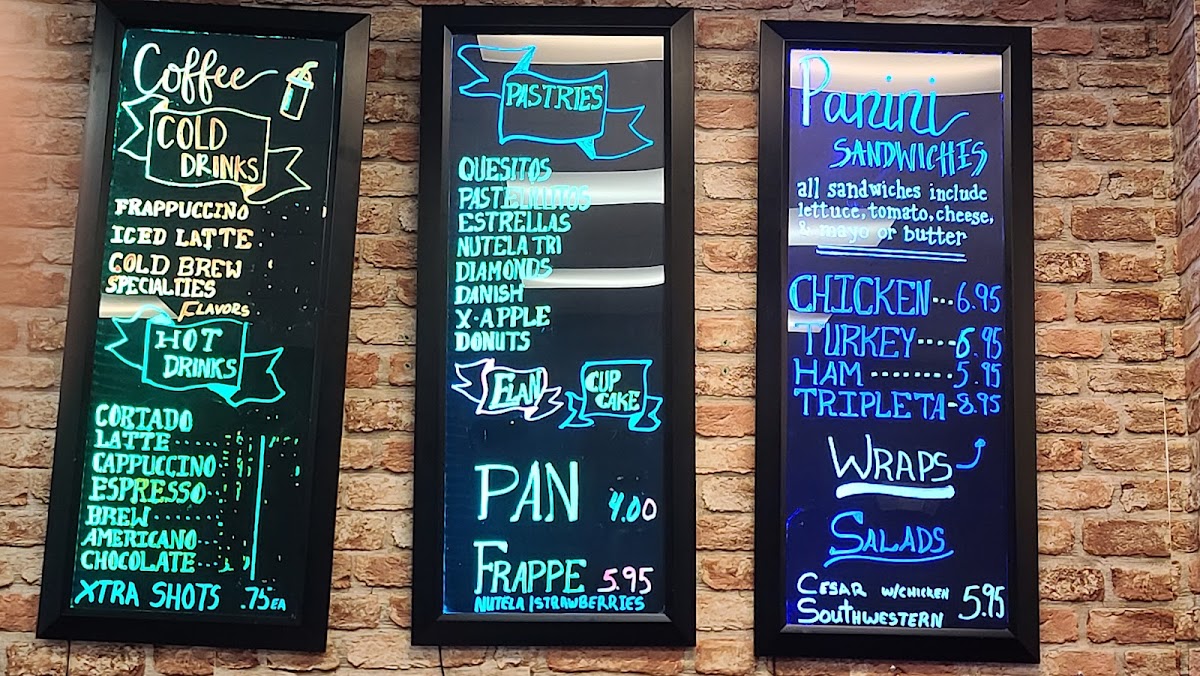 Coffee
COLD
DRINKS
FRAPPUCCINO
ICED LATTE
COLD BREW
SPECIALTIES
FLAVORS
HOT
DRINKS
CORTADO
LATTE
CAPPUCCINO
ESPRESSO
BREW
AMERICANO
CHOCOLATE
XTRA SHOTS .75EA
PASTRIES
QUESITOS
PASTELILLITOS
ESTRELLAS
NUTELA TRI
DIAMONDS
DANISH
X-APPLE
DONUTS
FLAN
CUP
CAKE
PAN 4.00
FRAPPE 5.95
NUTELA/STRAWBERRIES
Panini
SANDWICHES
all sandwiches include
lettuce, tomato, cheese,
& mayo or butter
CHICKEN...6.95
TURKEY....6.95
HAM........5.95
TRIPLETA-8.95
WRAPS
SALADS
CESAR W/CHICKEN 5.95
SOUTHWESTERN